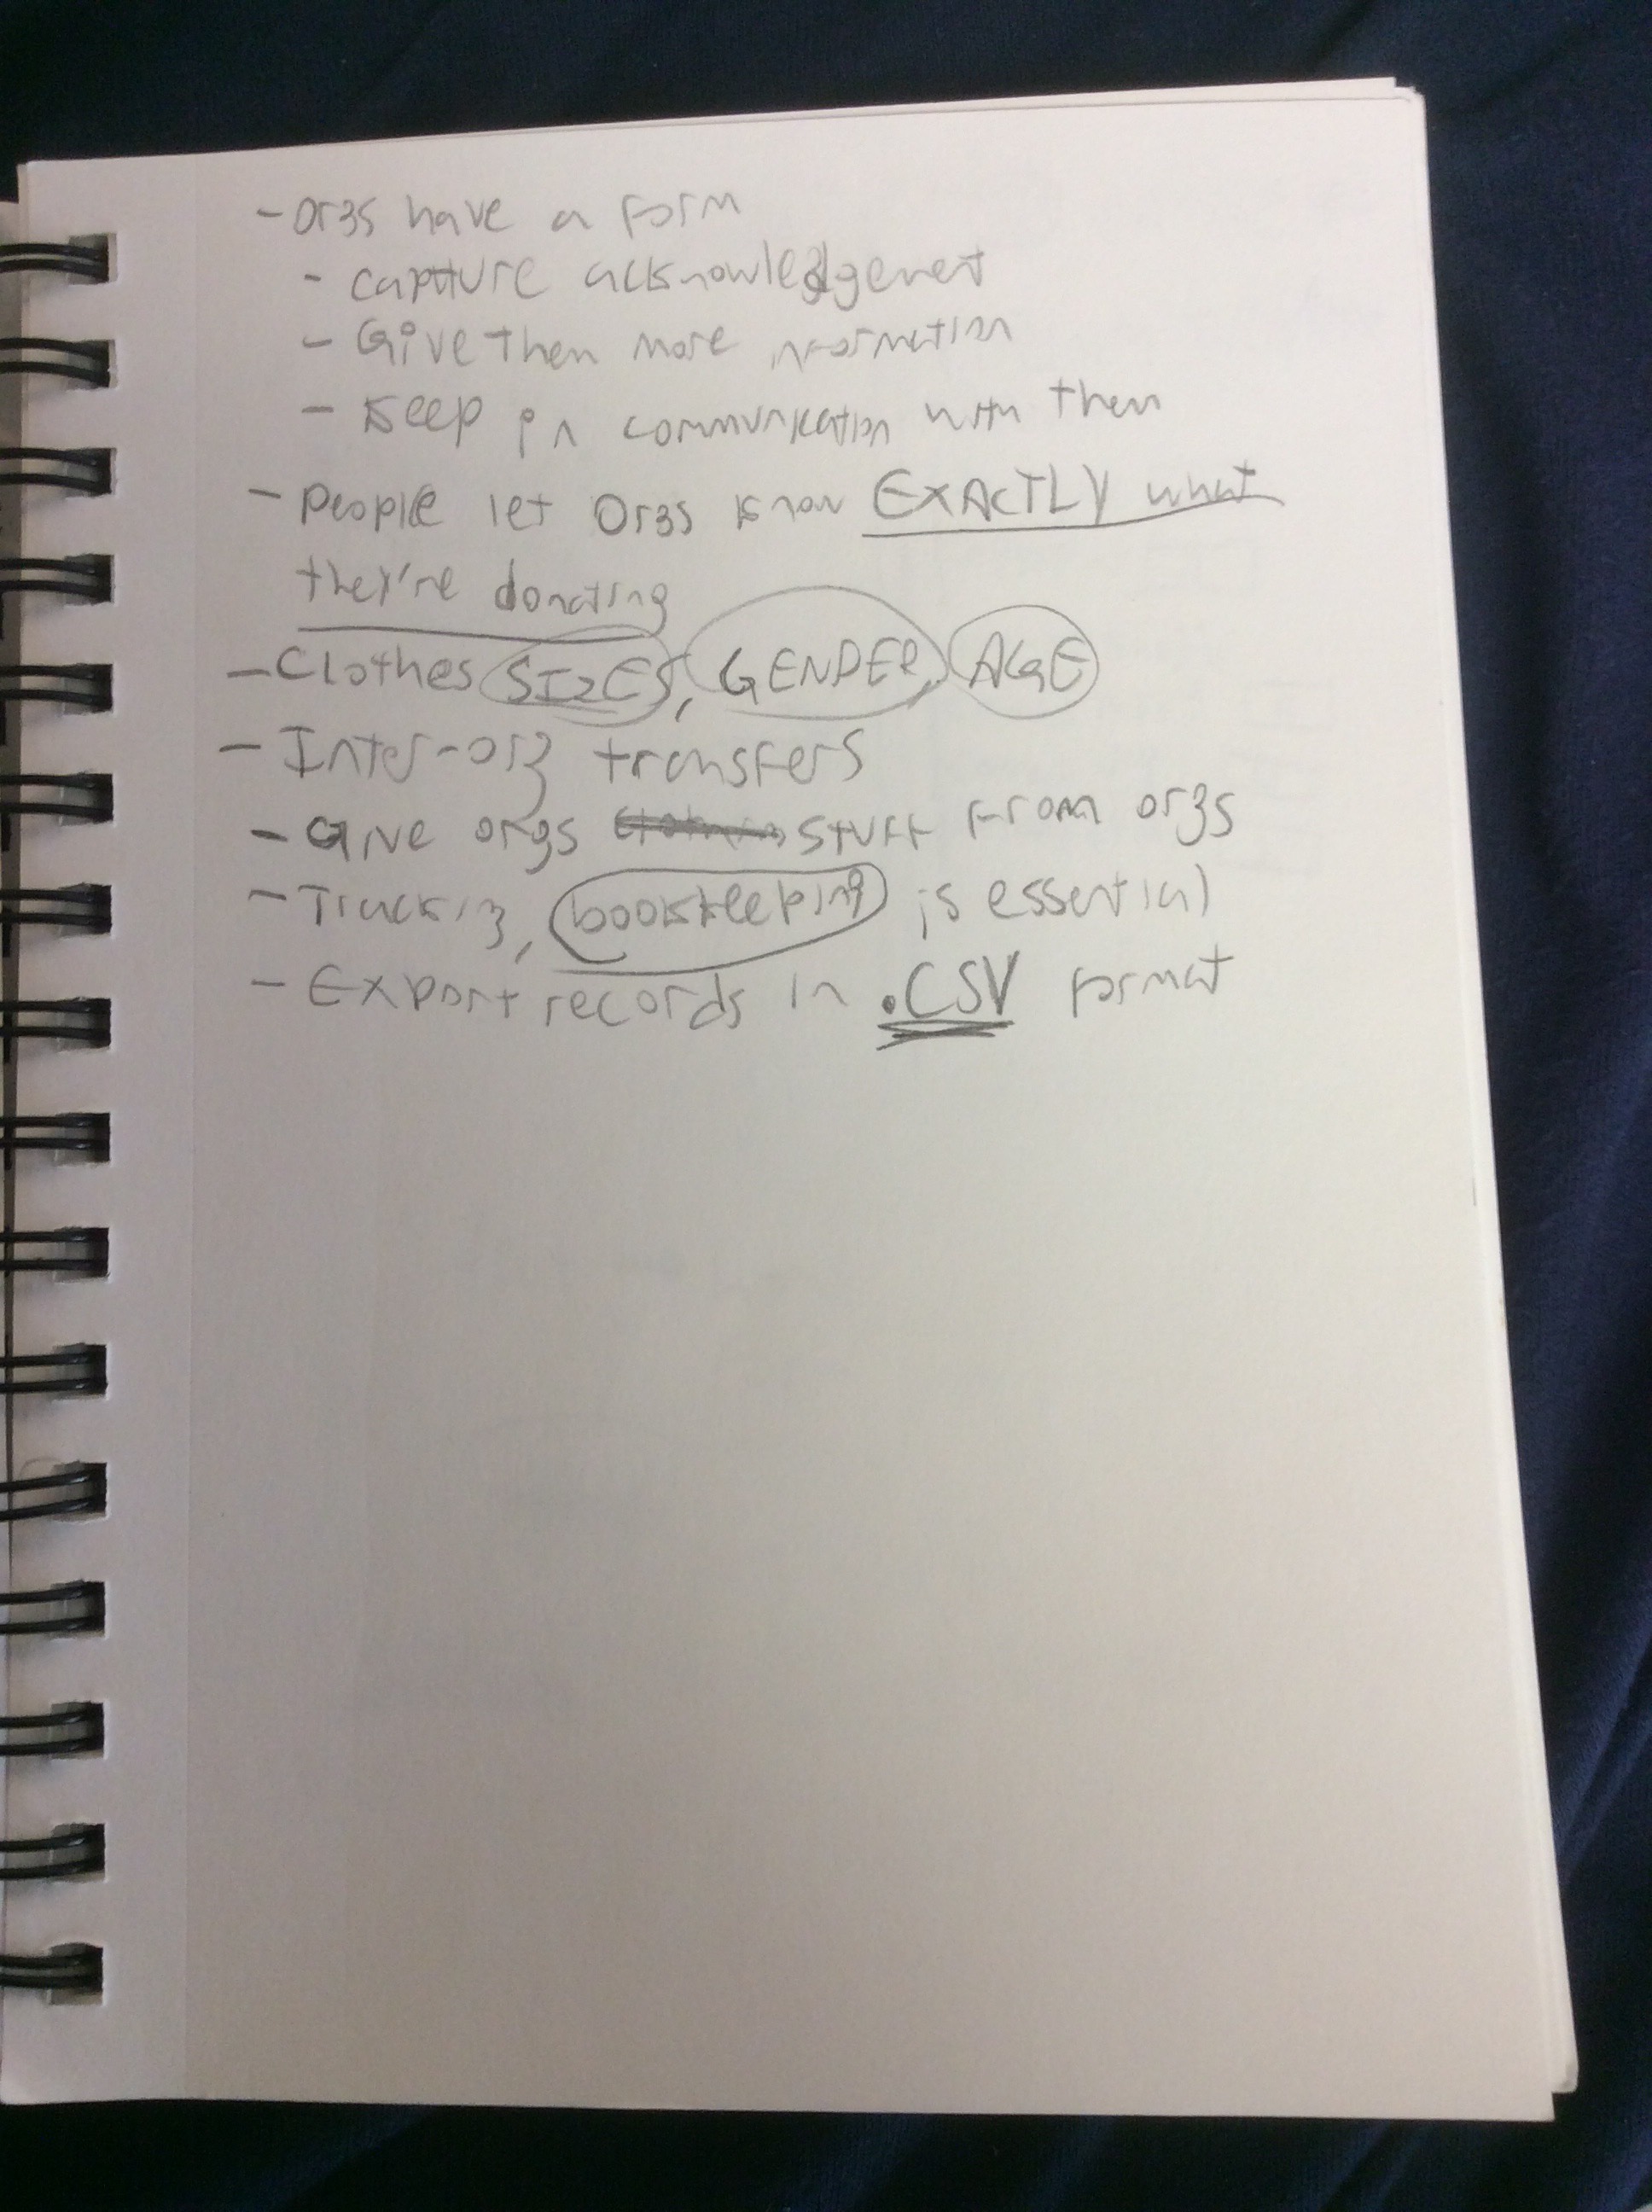 - Orgs have a form
- capture acknowledgement
- Give them more information
- Keep in communication with them
- People let Orgs know EXACTLY what
they're donating
- Clothes SIZES, GENDER, AGE
- Inter-org transfers
- Give orgs stuff from orgs
- Tracking, bookkeeping is essential
- Export records in .CSV format